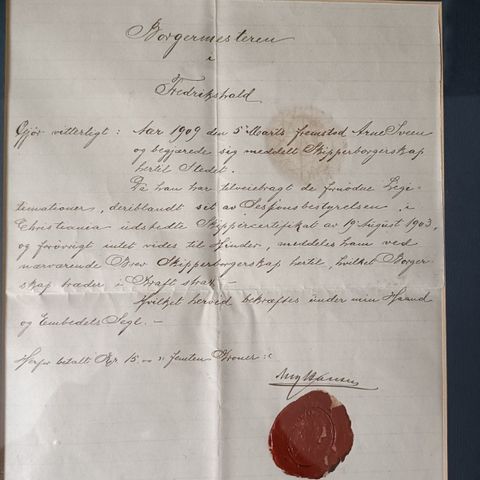 Borgermesteren
i
Fredrikshald
Gjør vitterligt: Aar 1909 den 5 Marts fremstod Arne Sveen
og begjærede sig meddelt Skipperborgerskap
hertil Stedet.
Da han har tilveiebragt de fornødne Legi-
timationer, deriblandt sit av Sessionsbestyrelsen i
Christiania udstedte Skippercertifikat av 19 August 1903,
og forøvrigt intet vides til Hinder, meddeles ham ved
nærværende Brev Skipperborgerskap hertil, hvilket Borger-
skap træder i Kraft strax.—
Hvilket herved bekræftes under min Haand
og Embedets Segl.—
Herfor betalt Kr. 15 femten Kroner